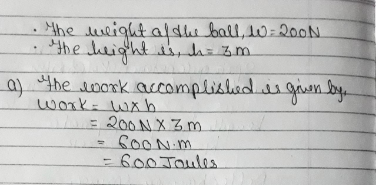 • The weight of the ball, w = 200N
• The height is, h = 3m
a) The work accomplished is given by,
Work = w x h
= 200N X 3m
= 600 N·m
= 600 Joules